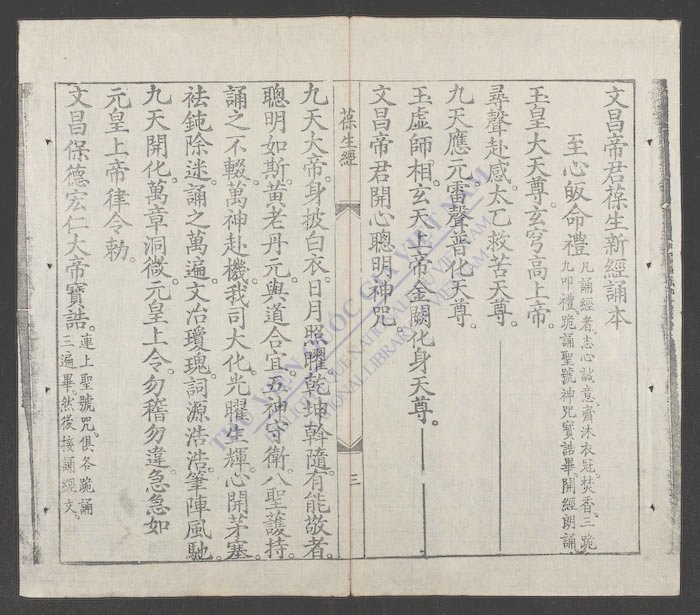 文昌帝君葆生新經誦本
至心皈命禮
凡誦經者志心誠意齋沐衣冠焚香三跪
九叩禮跪誦聖號神咒寶誥畢開經朗誦
玉皇大天尊。玄穹高上帝。
尋聲赴感。太乙救苦天尊。
九天應元。雷聲普化天尊。
玉虛師相。玄天上帝金闕化身天尊。
文昌帝君開心聰明神咒。
葆生經
三
九天大帝。身披白衣。日月照曜。乾坤斡隨。有能敬者。
聰明如斯。黃老丹元。與道合宜。五神守衛。八聖護持。
誦之不輟。萬神赴機。我司大化。光曜生輝。心開茅塞。
祛鈍除迷。誦之萬遍。文冶瓊瑰。詞源浩浩。筆陣風馳。
九天開化。萬章洞微。元皇上令。勿稽勿違。急急如
元皇上帝律令勅。
文昌保德宏仁大帝寶誥。
連上聖號咒。俱各跪誦
三遍畢。然後接誦經文。
THƯ VIỆN QUỐC GIA VIỆT NAM
BIBLIOTHÈQUE NATIONALE DU VIETNAM
NATIONAL LIBRARY OF VIETNAM